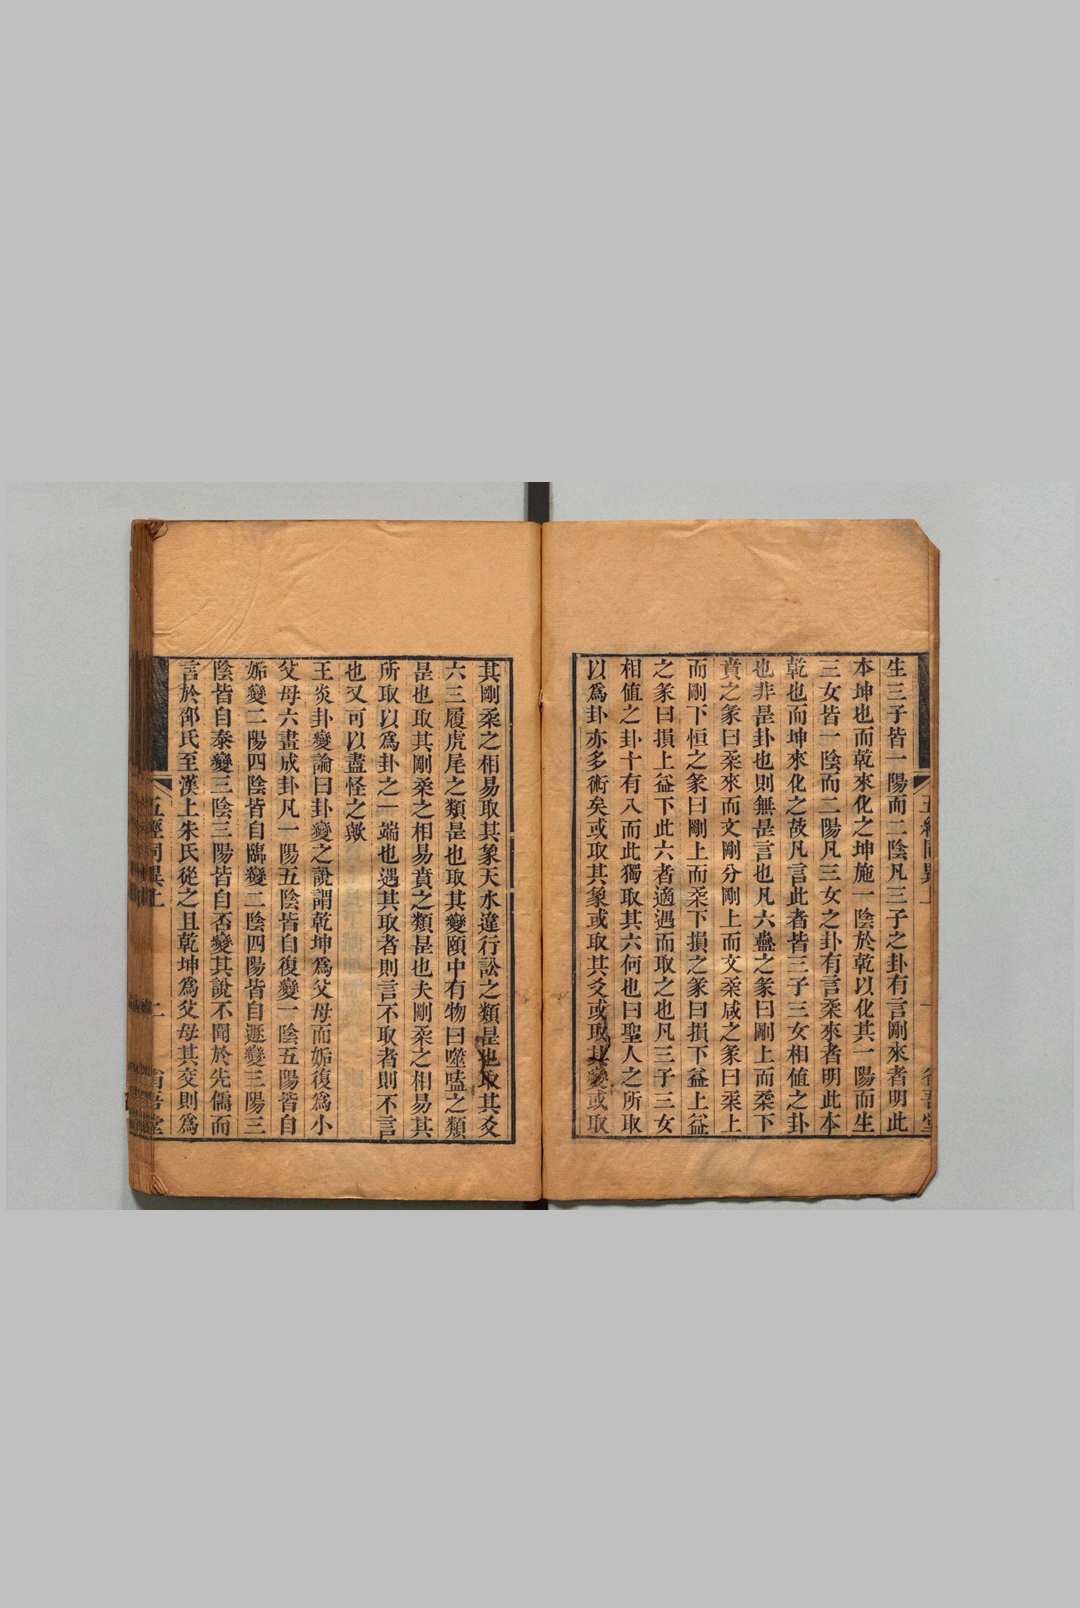 生三子皆一陽而二陰凡三子之卦有言剛來者明此
本坤也而乾來化之坤施一陰於乾以化其一陽而生
三女皆一陰而二陽凡三女之卦有言柔來者明此本
乾也而坤來化之故凡言此者皆三子三女相值之卦
也非是卦也則無是言也凡六蠱之彖曰剛上而柔下
賁之彖曰柔來而文剛分剛上而文柔咸之彖曰柔上
而剛下恒之彖曰剛上而柔下損之彖曰損下益上益
之彖曰損上益下此六者適遇而取之也凡三子三女
相值之卦十有八而此獨取其六何也曰聖人之所取
以爲卦亦多術矣或取其象或取其爻或取其變或取
其剛柔之相易取其象天水違行訟之類是也取其爻
六三履虎尾之類是也取其變頤中有物曰噬嗑之類
是也取其剛柔之相易賁之類是也夫剛柔之相易其
所取以爲卦之一端也遇其取者則言不取者則不言
也又可以盡怪之歟
王炎卦變論曰卦變之說謂乾坤爲父母而姤復爲小
父母六畫成卦凡一陽五陰皆自復變一陰五陽皆自
姤變二陽四陰皆自臨變二陰四陽皆自遯變三陽三
陰皆自泰變三陰三陽皆自否變其說不聞於先儒而
言於邵氏至漢上朱氏從之且乾坤爲父母其交則爲
五經同異上
二
省吾堂